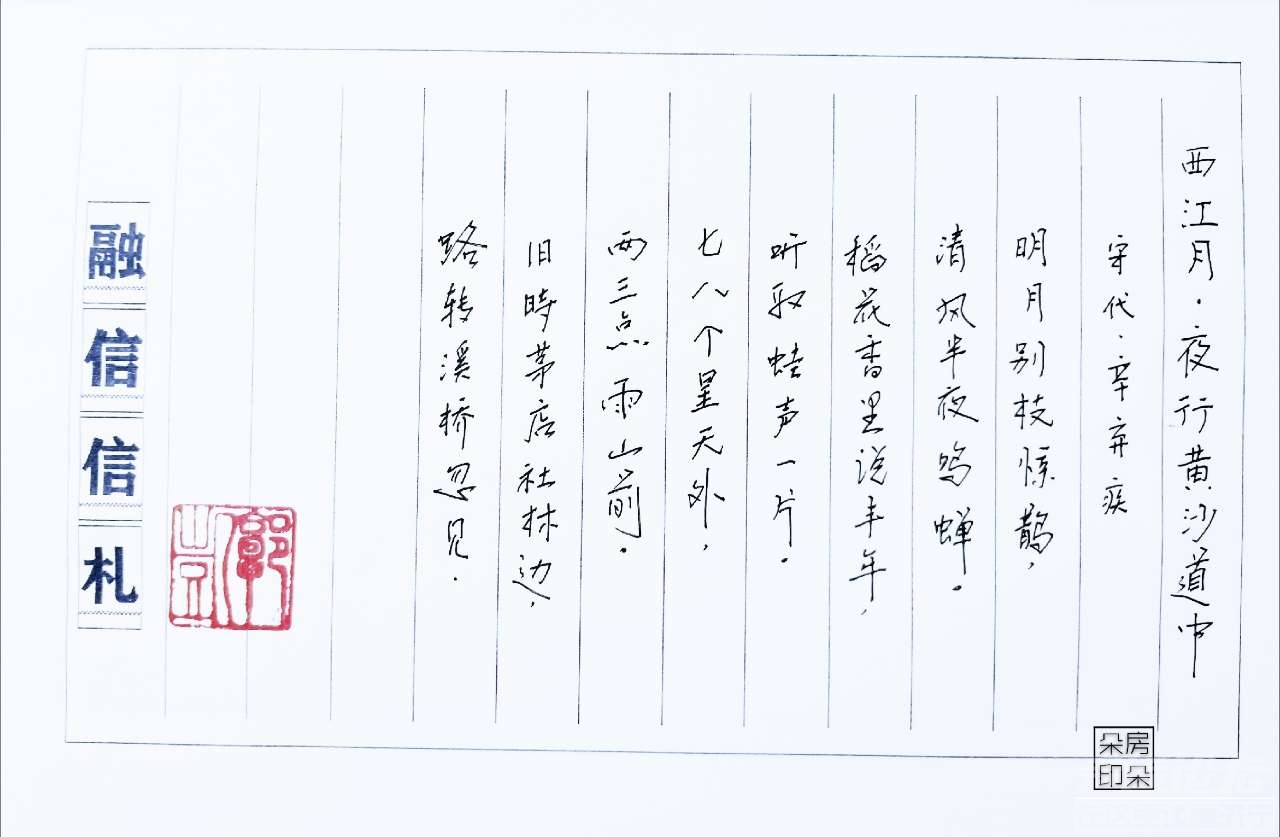 西江月·夜行黄沙道中
宋代·辛弃疾
明月别枝惊鹊，
清风半夜鸣蝉。
稻花香里说丰年，
听取蛙声一片。
七八个星天外，
两三点雨山前。
旧時茅店社林边，
路转溪桥忽见.
融信信札
郭
房朵
朵印